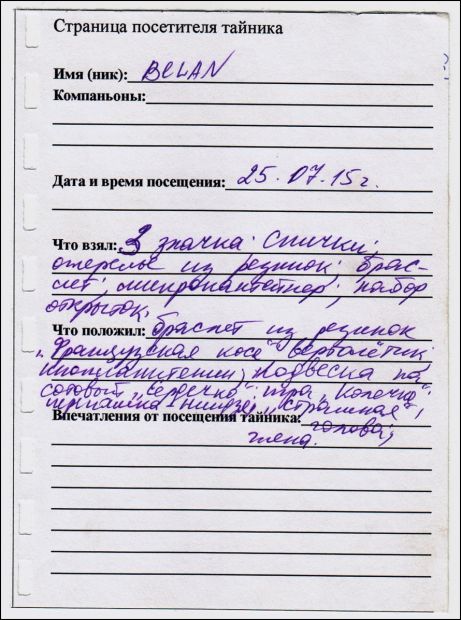 Страница посетителя тайника
Имя (ник): BELAN
Компаньоны:
Дата и время посещения: 25.07.15г.
Что взял: 3 значка; спички;
ожерелье из резинок; брас-
лет; микроконтейнер; набор
открыток.
Что положил: браслет из резинок
"Французская коса" вертолётик;
подвеска на
сотовый "сердечко" игра "Колечко"
"страшная"
Впечатления от посещения тайника: голова;